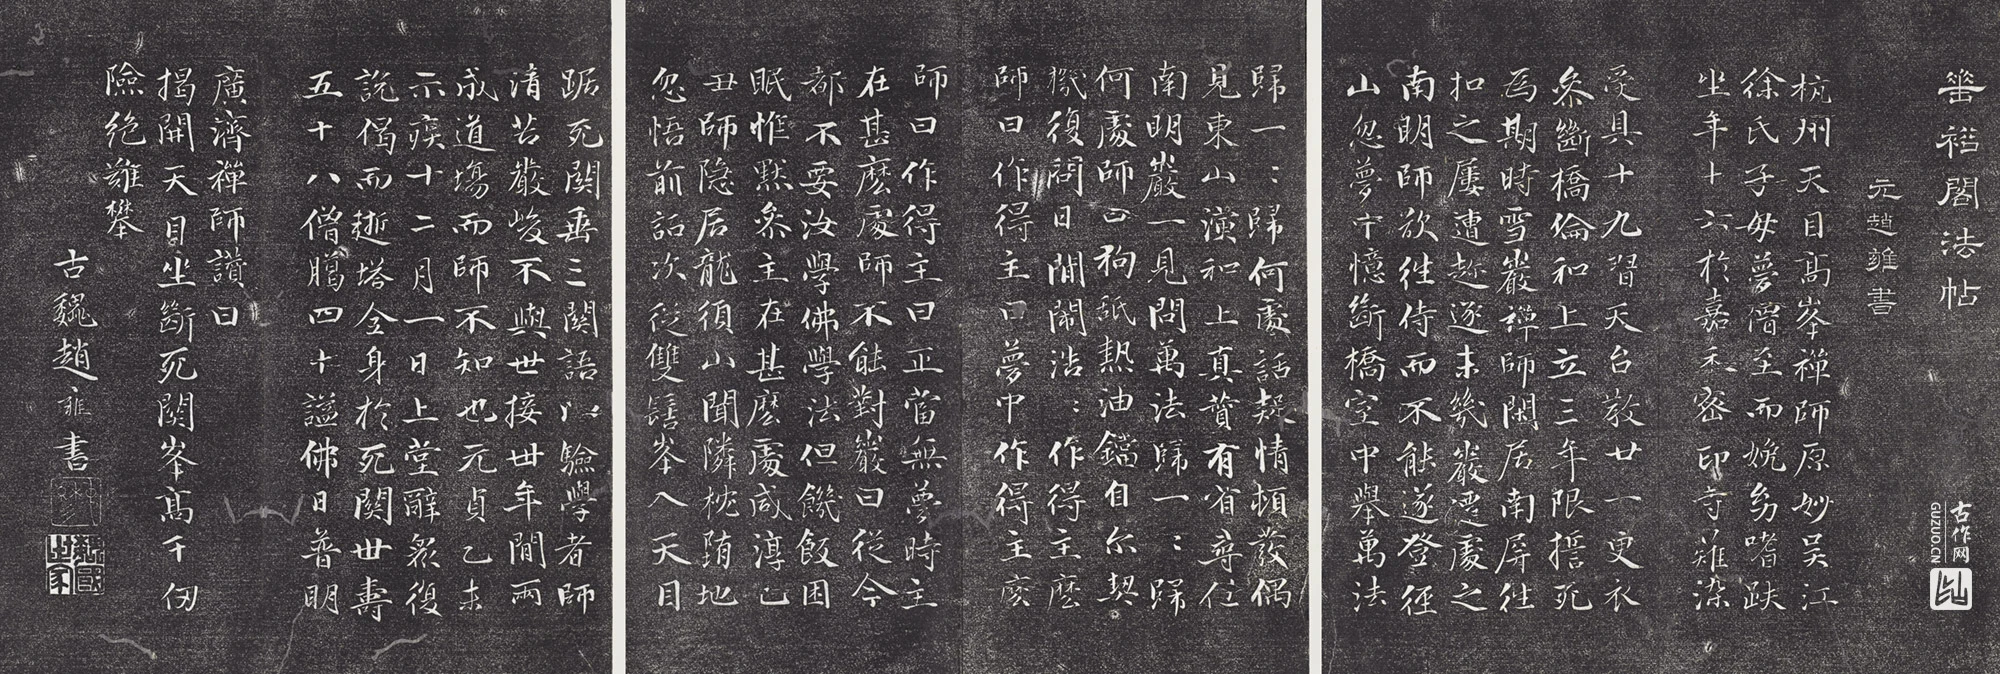 筞褚閣法帖
元趙雍書
杭州天目高峯禪師原妙吴江
徐氏子母夢僧至而娩幼嗜趺
坐年十六於嘉禾密印寺薙染
受具十九習天台教廿一更衣
叅斷橋倫和上立三年限誓死
爲期時雪巖禪師閑居南屏往
扣之屢遭趂逐未幾巖遷處之
南明師欲往侍而不能遂登徑
山忽夢中憶斷橋室中舉萬法
歸一：歸何處話疑情頓發偶
見東山演和上真贊有省尋住
南明巖一見問萬法歸一：歸
何處師曰狗舐熱油鐺自尔契
機復問日間閙浩：作得主麽
師曰作得主曰夢中作得主麽
師曰作得主曰正當無夢時主
在甚麽處師不能對巖曰從今
都不要汝學佛學法但饑飯困
眠惟默叅主在甚麽處咸淳己
丑師隐居龍須山聞隣枕墮地
忽悟前話次從雙髻峯入天目
踞死関垂三関語以驗學者師
清苦嚴峻不與世接丗年間兩
成道場而師不知也元貞乙未
示疾十二月一日上堂辭衆復
説偈而逝塔全身於死関丗壽
五十八僧臘四十諡佛日普明
廣濟禪師讃曰
揭開天目坐斷死関峯高千仞
險絶難攀
古魏趙雍書
古作网
GUZUO.CN